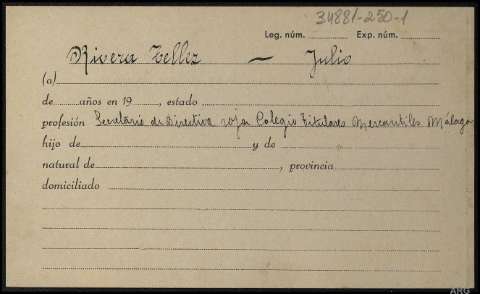 34881-250-1
Leg. núm. Exp. núm.
Rivera Tellez — Julio
(a)
de años en 19 , estado
profesión Secretario de Directiva roja Colegio Titulares Mercantiles Málaga
hijo de y de
natural de , provincia
domiciliado
ARG